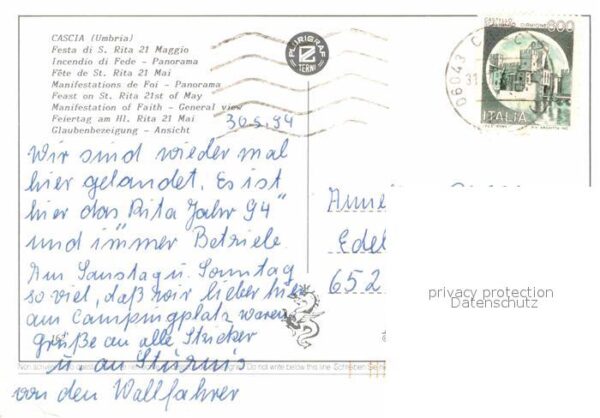 CASCIA (Umbria)
Festa di S. Rita 21 Maggio
Incendio di Fede - Panorama
Fête de St. Rita 21 Mai
Manifestations de Foi - Panorama
Feast on St. Rita 21st of May
Manifestation of Faith - General view
Feiertag am Hl. Rita 21 Mai
Glaubenbezeigung - Ansicht
PLURIGRAF
TERNI
CASTELLO
800
ITALIA
06043 C
31
30.5.94
Wir sind wieder mal
hier gelandet. Es ist
hier das Rita Jahr 94"
und immer Betriebe
Am Samstag u. Sonntag
so viel, daß wir lieber hier
am Campingplatz waren
Grüße an alle Stricker
u. an Sturmis
von den Wallfahrer
Edel
652
privacy protection
Datenschutz
Do not write below this line